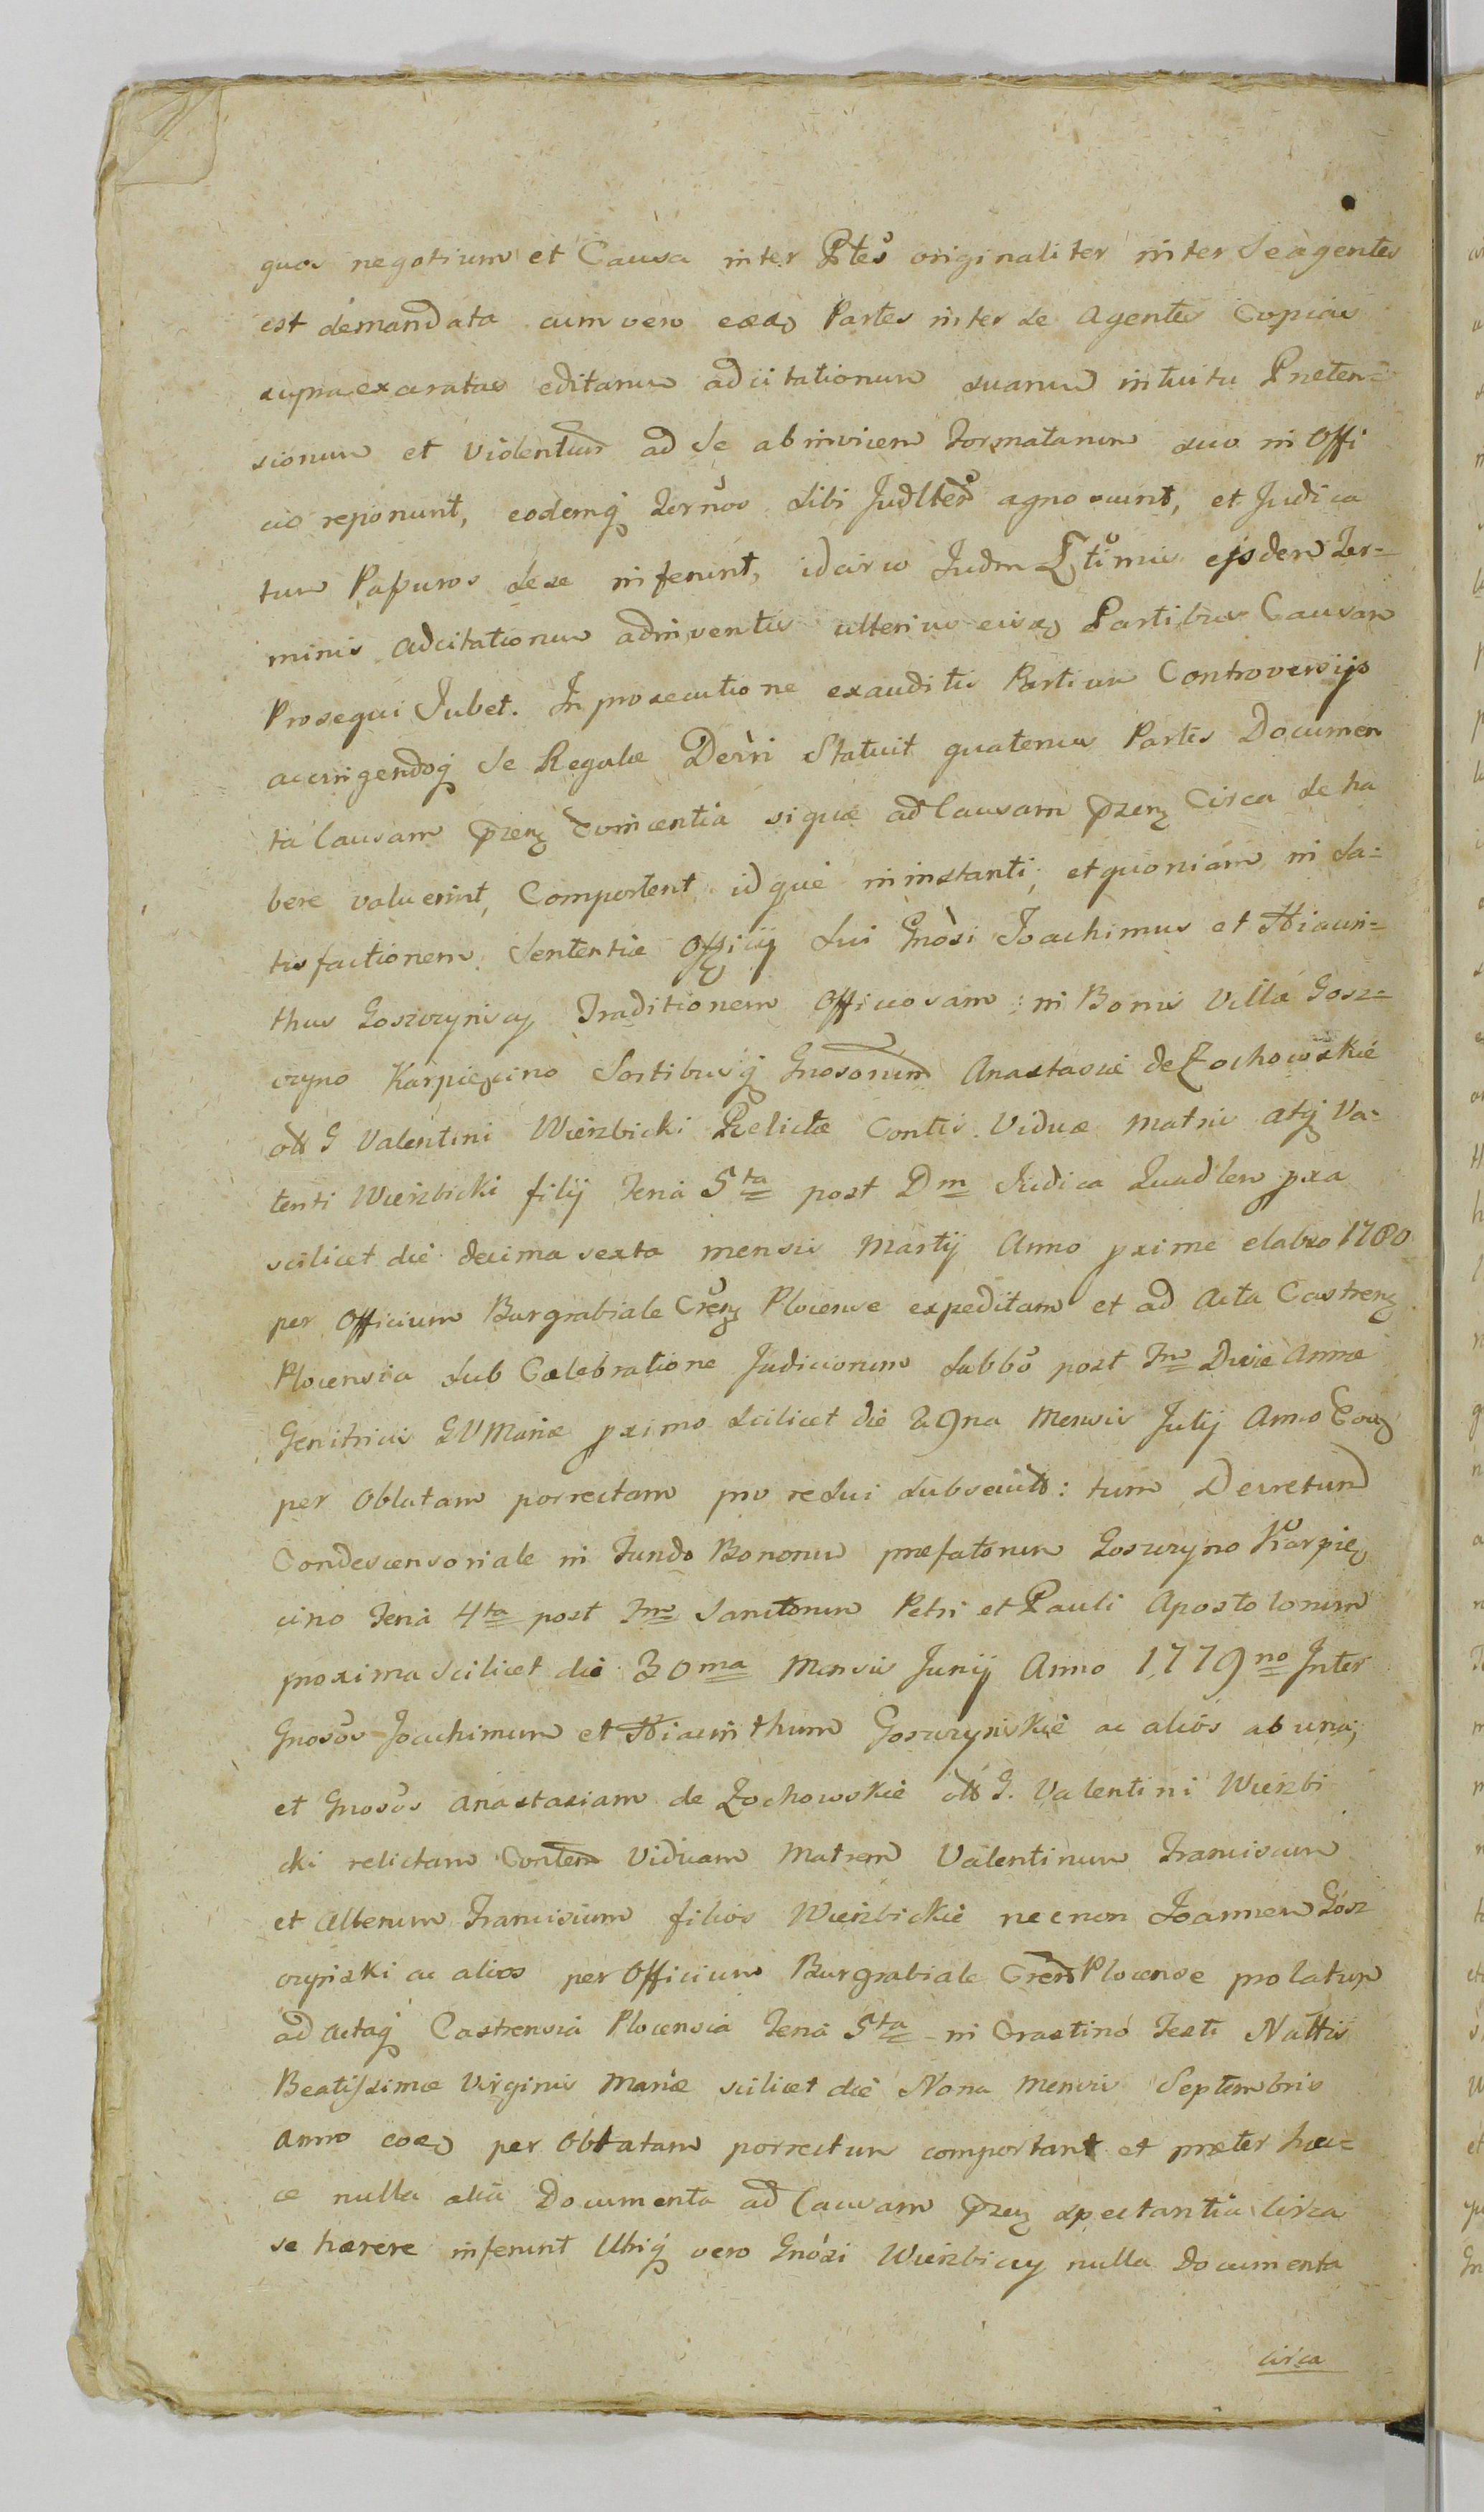 quos negotium et Causa inter Ptes originaliter inter Se agentes
est demandata cum vero eaedem Partes inter se Agentes Copias
supra exaratas editarum adcitationum suarum intuitu Preten=
sionum et violentiarum ad Se ab invicem Formatarum suo in Offi
cio reponunt, eodemq Ternos sibi Judlter agnoscunt, et Judica
tum Passuros sese inferunt, idcirco Judm ejsdem Ter=
minis adcitationum adinventis ulterius eisdem Partibus Causam
Prosequi Jubet. In prosecutione exauditis Partium Controversijs
accingendoq se Regulae Derri Statuit quatenus Partes Documen
ta Causam przen convincentia si quae ad Causam przen Circa se ha
bere valuerint, Comportent idque in instanti, et quoniam in Sa=
tisfactionem Sententiae Officij Sui Gnosi Joachimus et Hiacin=
thus Goszczynscy Traditionem Officiosam in Bonis Villae Gosz=
czyno Karpięcino Sortibusq Gnosorum Anastasiae de Zochowskie
olt G Valentini Wierzbicki Relictae Contis Viduae Matris atq Va=
lenti Wierzbicki filij Feria 5ta post Dm Judica Quadlem pxa
scilicet die decima sexta mensis Martij Anno pxime elabso 1780
per Officium Burgrabiale Crens Plocense expeditam et ad Acta Castren
Plocensia sub Caelebratione Judiciorum Sabbo post Fm Divae Annae
Genitricis BVMariae pximo scilicet die 29na Mensis Julij Anno Eod
per Oblatam porrectam pro redui subsecuta: tum Decretum
Condescensoriale in Fundo Bonorum praefatorum Goszczyno Karpię
cino Feria 4ta post Fm Sanctorum Petri et Pauli Apostolorum
proxima scilicet die 30ma Mensis Junij Anno 1779no Inter
Gnosos Joachimum et Hiacinthum Goszczynskie ac alios ab una,
et Gnosos Anastasiam de Zochowskie olt G. Valentini Wierzbi
cki relictam Contem Viduam Matrem Valentinum Franciscum
et Alterum Franciscum filios Wierzbickie necnon Joannem Gosz
czynski ac alios per Officium Burgrabiale Cren Plocense prolatum
ad Actaq Castrensia Plocensia Feria 5ta in Crastino Festi Nattis
Beatissimae Virginis Mariae scilicet die Nona Mensis Septembris
Anno eod per Oblatam porrectum comportant et praeter haec=
ce nulla alia Documenta ad Causam przen spectantia Circa
se haerere inferunt Ubiq vero Gnosi Wierzbiccy nulla Documenta
circa